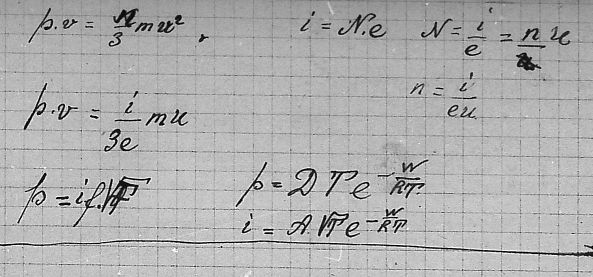 p.v = n/3 mu², i = N.e N = i/e = n/ u
n = i/eu
p.v = i/3e mu
p = i f.√T p = D T e^{-W/RT}
i = A √T e^{-W/RT}